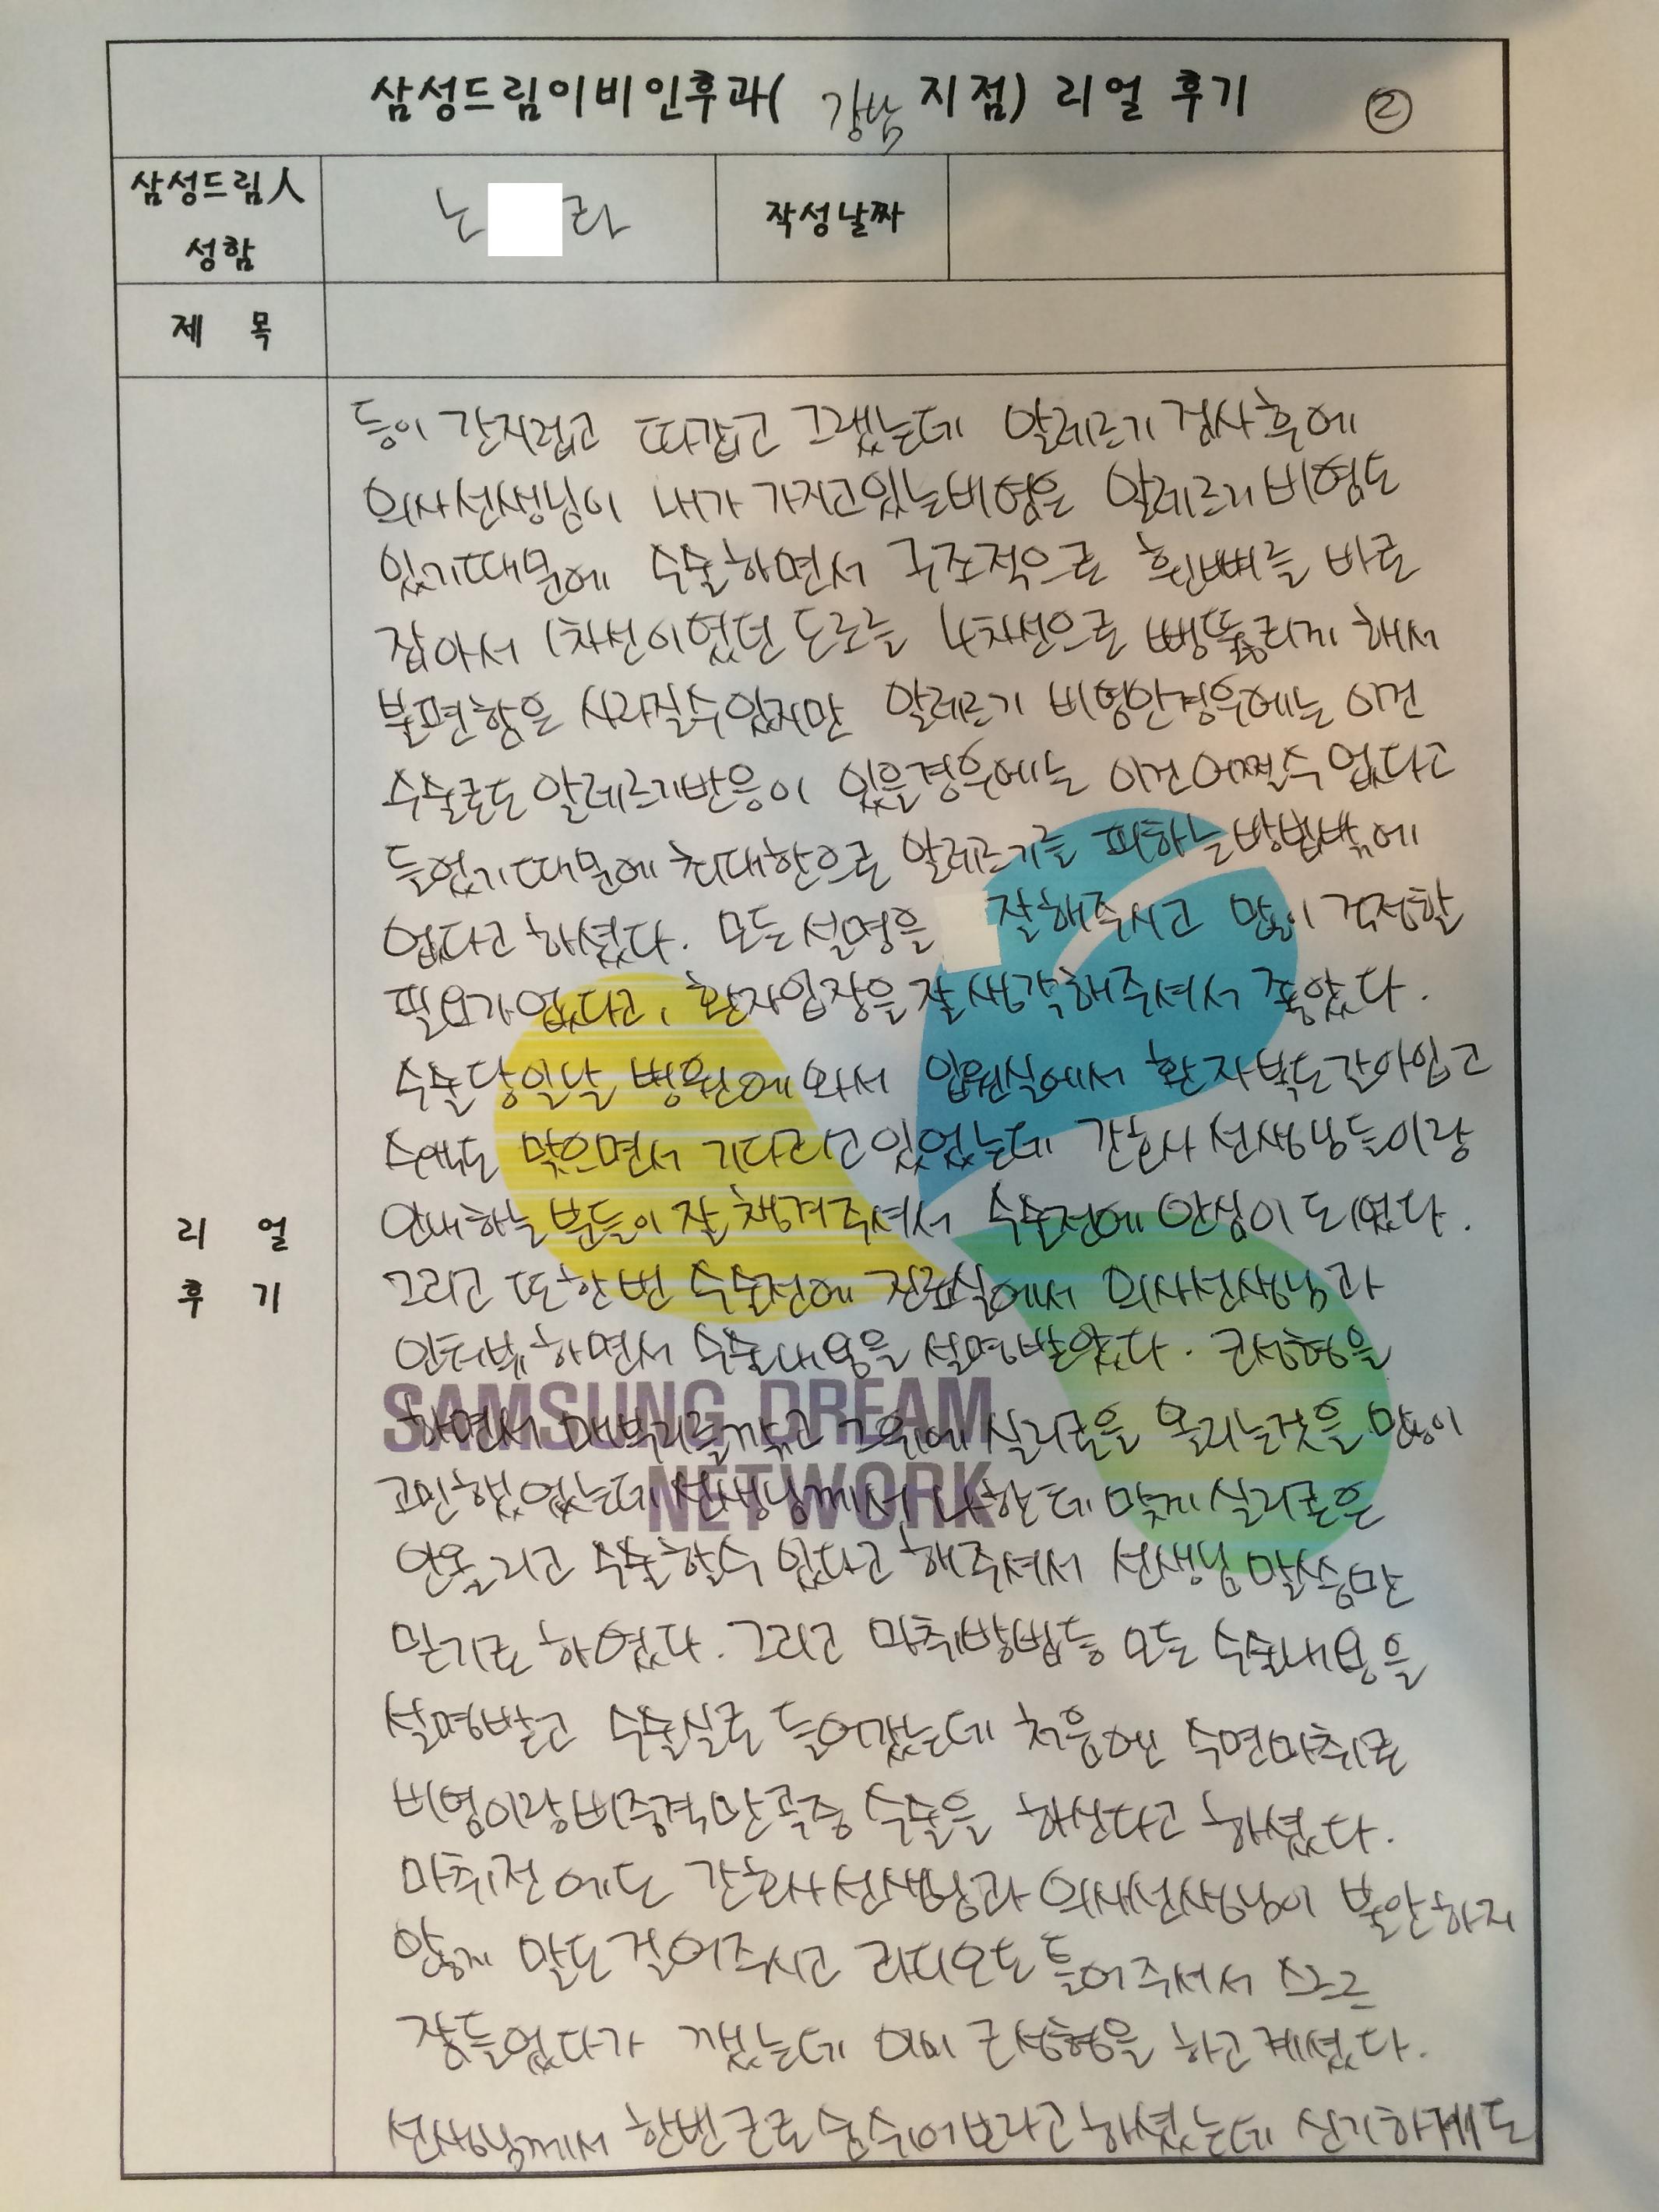 삼성드림이비인후과( 강남 지점) 리얼 후기 ②
삼성드림人 성함
노 라
작성날짜
제 목
리 얼 후 기
등이 간지럽고 따갑고 그랬는데 알레르기 검사후에
의사선생님이 내가 가지고있는비염은 알레르기비염도
있기때문에 수술하면서 구조적으로 휜뼈를 바로
잡아서 1차선이였던 도로를 4차선으로 뻥뚫리게 해서
불편함은 사라질수있지만 알레르기 비염인경우에는 이건
수술로도 알레르기반응이 있을경우에는 이건어쩔수 없다고
들었기때문에 최대한으로 알레르기를 피하는방법밖에
없다고 하셨다. 모든설명을 잘해주시고 많이 걱정할
필요가없다고, 환자입장을잘생각해주셔서 좋았다.
수술당일날 병원에와서 입원실에서 환자복도갈아입고
수액도 맞으면서 기다리고있었는데 간호사선생님들이랑
안내하는 분들이 잘챙겨주셔서 수술전에 안심이 되었다.
그리고 또한번 수술전에 진료실에서 의사선생님과
인터뷰하면서 수술내용을 설명받았다. 코성형을
하면서 매부리를깎고 그위에 실리콘을 올리는것을 많이
고민했었는데 선생님께서 나한테 맞게실리콘은
안올리고 수술할수 있다고 해주셔서 선생님말씀만
믿기로 하였다. 그리고 마취방법등 모든 수술내용을
설명받고 수술실로 들어갔는데 처음엔 수면마취로
비염이랑비중격만곡증 수술을 하신다고 하셨다.
마취전에도 간호사선생님과 의사선생님이 불안하지
않게 말도걸어주시고 라디오도 틀어주셔서 스르르
잠들었다가 깼는데 이미 코성형을 하고계셨다.
선생님께서 한번코로숨쉬어보라고하셨는데 신기하게도
SAMSUNG DREAM
NETWORK